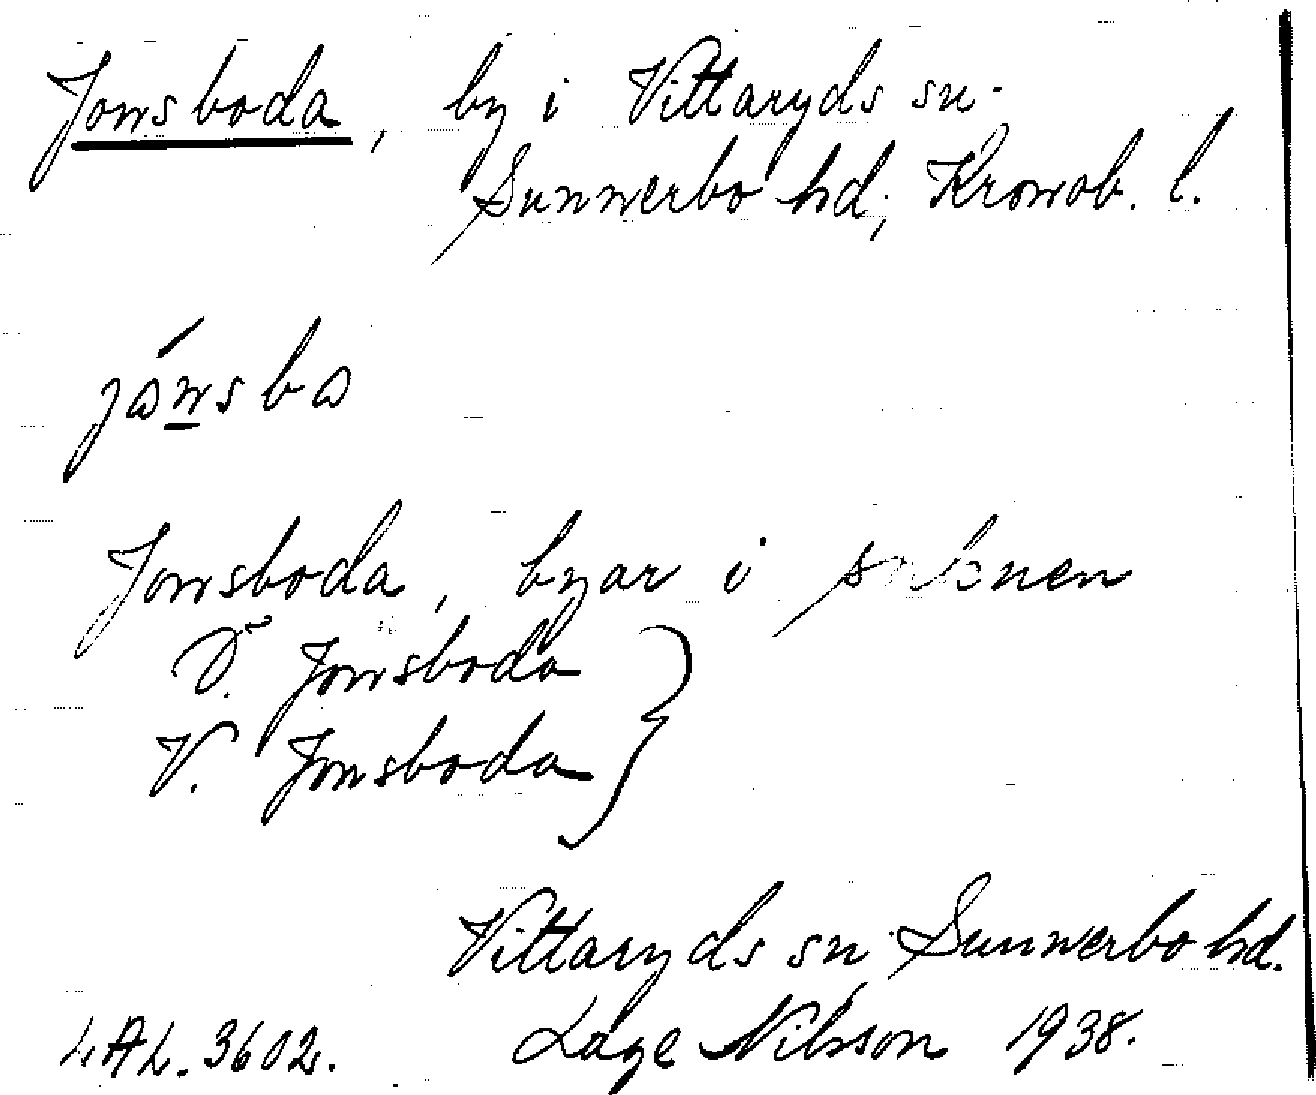 Jonsboda, by i Vittaryds sn.
Sunnerbo hd; Kronob. l.
jónsba
Jonsboda, byar i socknen
Ö. Jonsboda
V. Jonsboda
Vittaryds sn. Sunnerbo hd.
LAL. 3602. Lage Nilsson 1938.